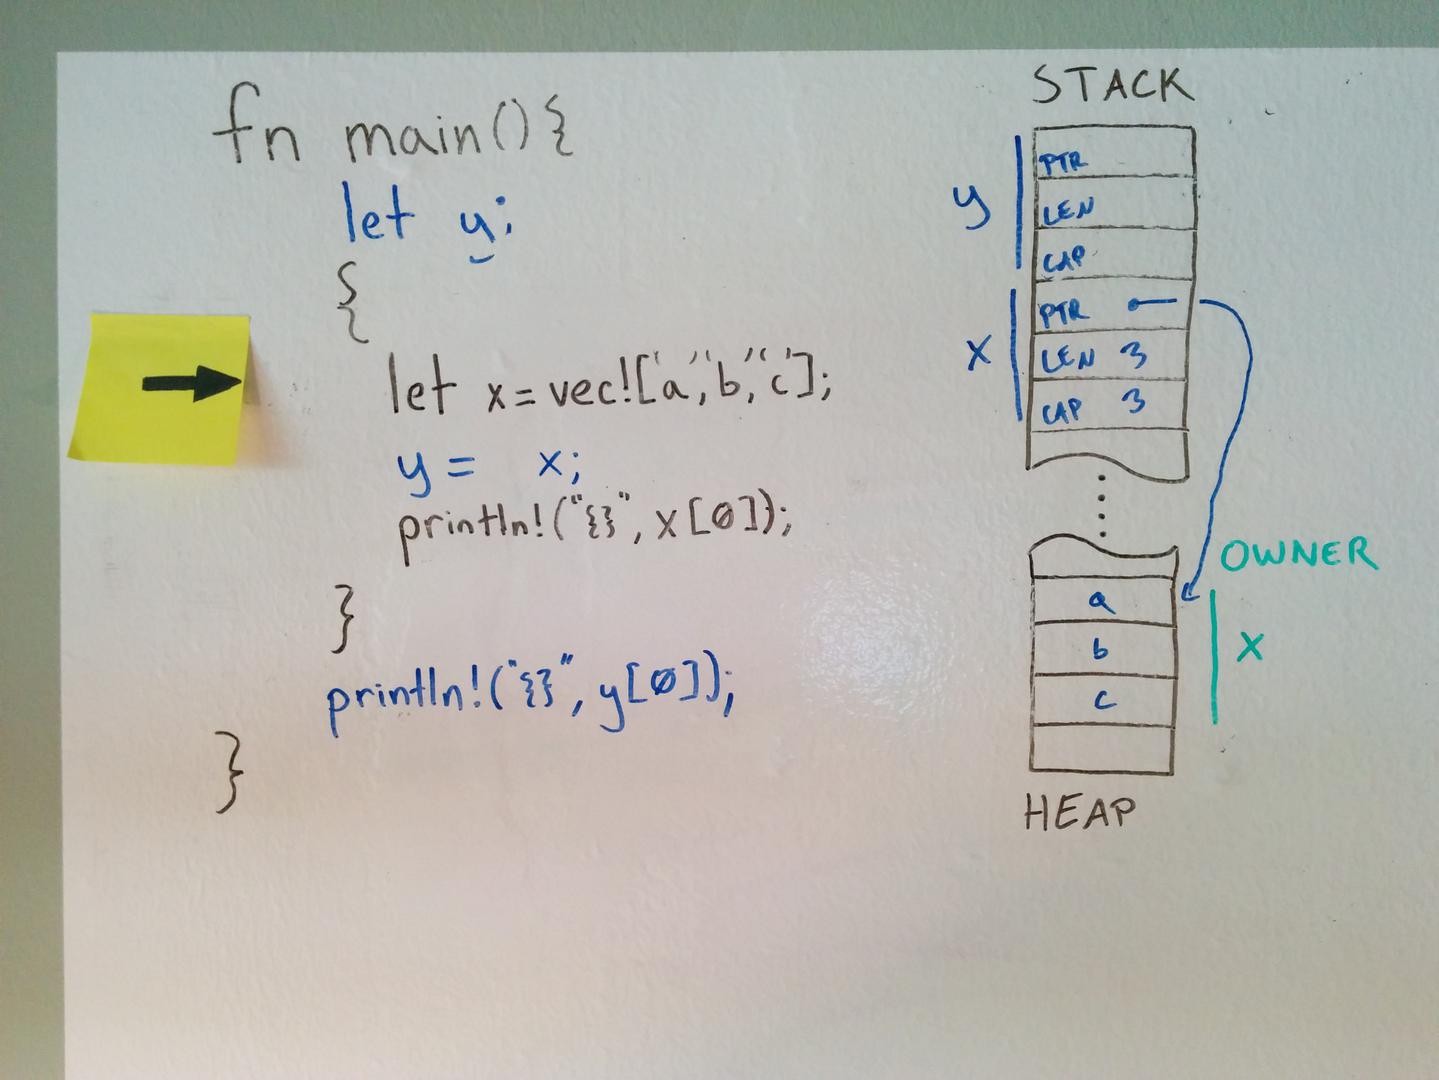 fn main(){
let y;
{
let x = vec!['a','b','c'];
y = x;
println!("{}", x[0]);
}
println!("{}", y[0]);
}
STACK
y
PTR
LEN
CAP
x
PTR
LEN 3
CAP 3
OWNER
a
b
x
c
HEAP